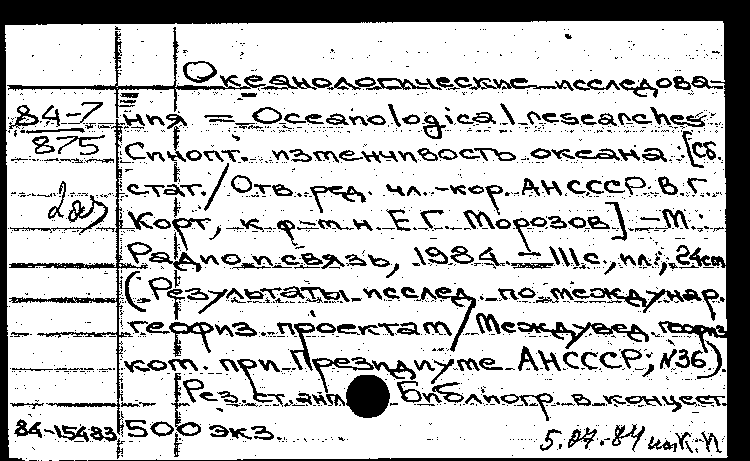 Океанологические исследова-
84-7 ния = Oceanological researches
875 Синопт. изменчивость океана: [Сб.
стат. / Отв. ред. чл.-кор. АН СССР В.Г.
2 Корт, к.ф.-м.н. Е.Г. Морозов] – М.:
Радио и связь, 1984. – 111 с., ил.; 24 cm
(Результаты исслед. по междунар.
геофиз. проектам / Междувед. геофиз.
ком. при Президиуме АН СССР; N36)
Рез. ст. англ. Библиогр. в конце ст.
84-15483 500 экз. 5.07.84